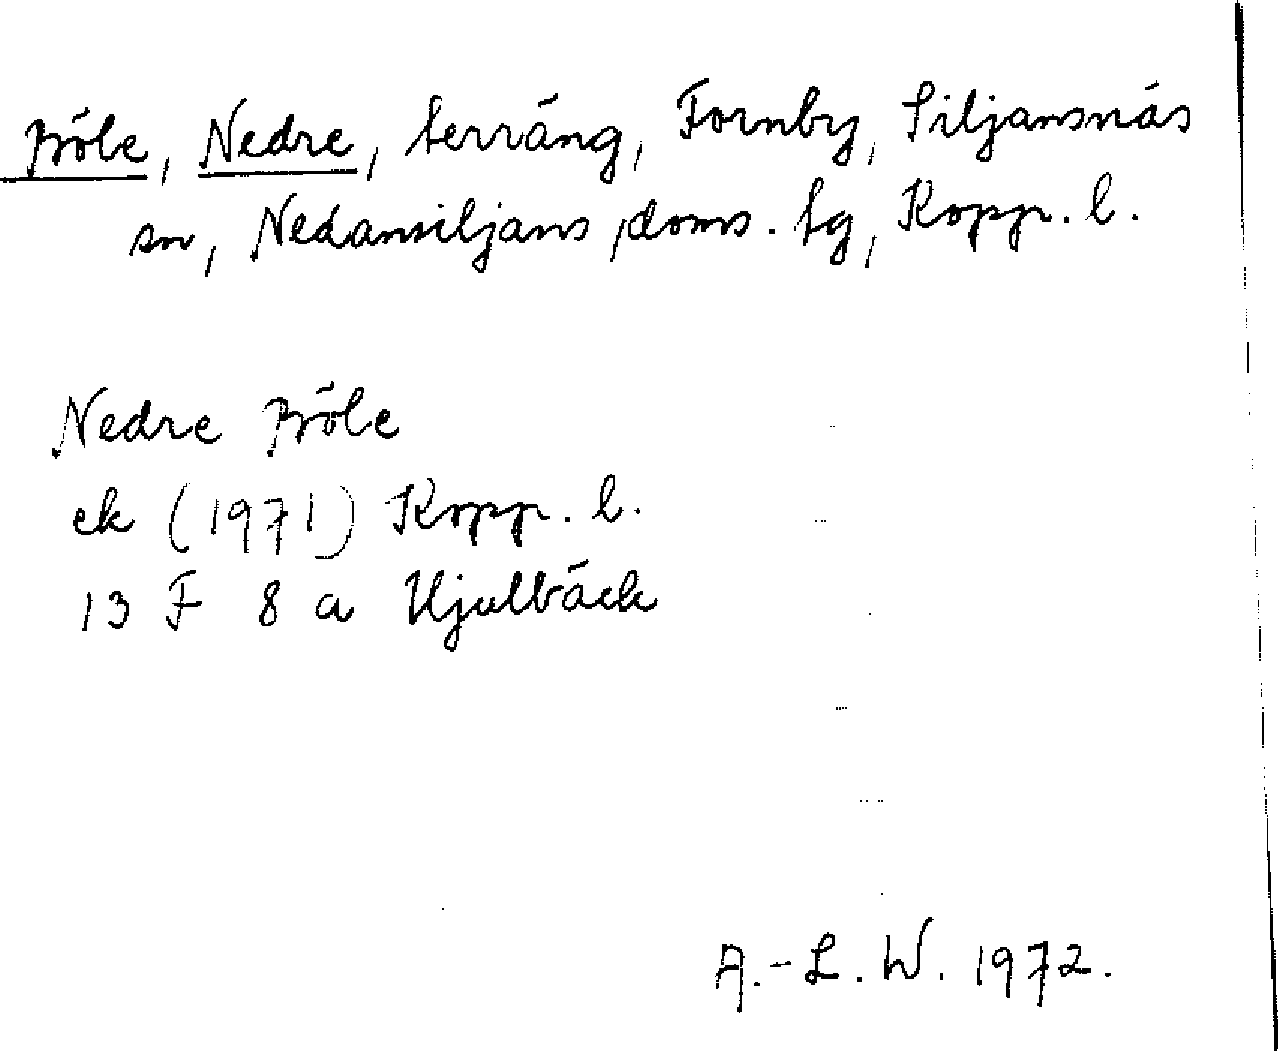 Böle, Nedre, terräng, Fornby, Siljansnäs
sn, Nedansiljans doms. tg, Kopp. l.
Nedre Böle
ek (1971) Kopp. l.
13 F 8 a Hjulbäck
A.-L. W. 1972.